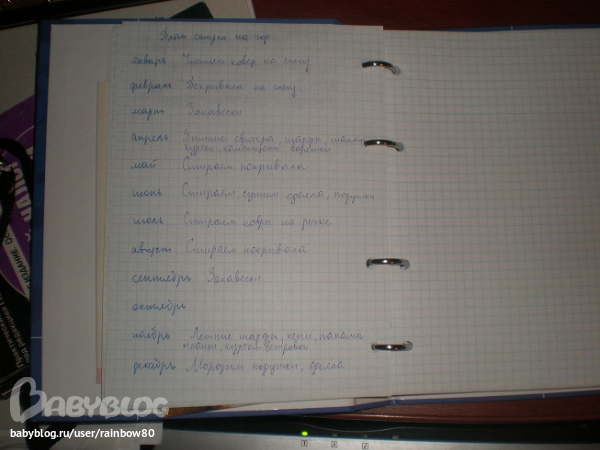 План стирки на год.
январь Чистим ковер на снегу
февраль Покрывала на снегу
март Занавески
апрель Зимние свитера, шарфы, шапки
куртки, комбинезоны, варежки
май Стираем покрывала
июнь Стираем, сушим одеяла, подушки
июль Стираем ковры на речке
август Стираем покрывала
сентябрь Занавески
октябрь
ноябрь Летние шарфы, кепки, панамы
плащи, куртки-ветровки
декабрь Морозим подушки, одеяла
BABYBLOG
babyblog.ru/user/rainbow80